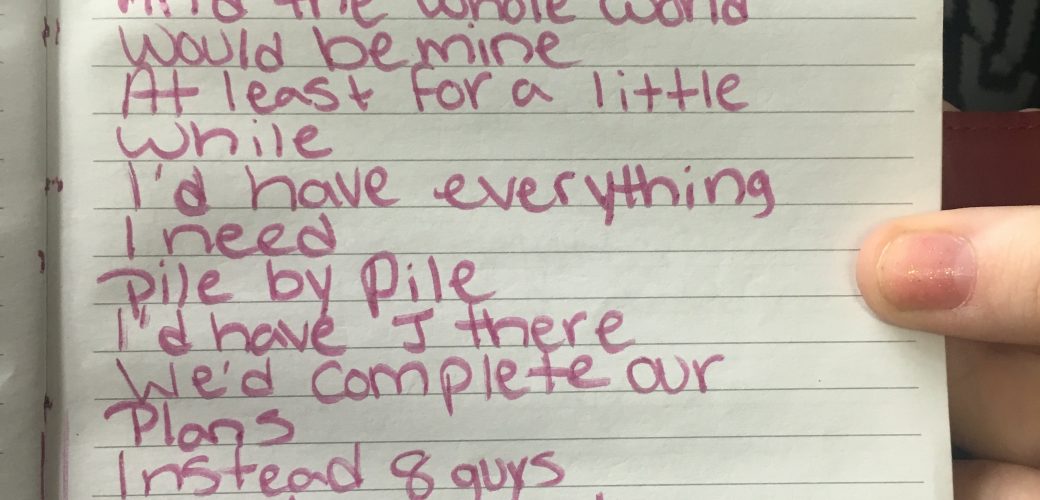 And the whole world
Would be mine
At least for a little
While
I'd have everything
I need
Pile by Pile
I'd have J there
We'd complete our
Plans
Instead 8 guys